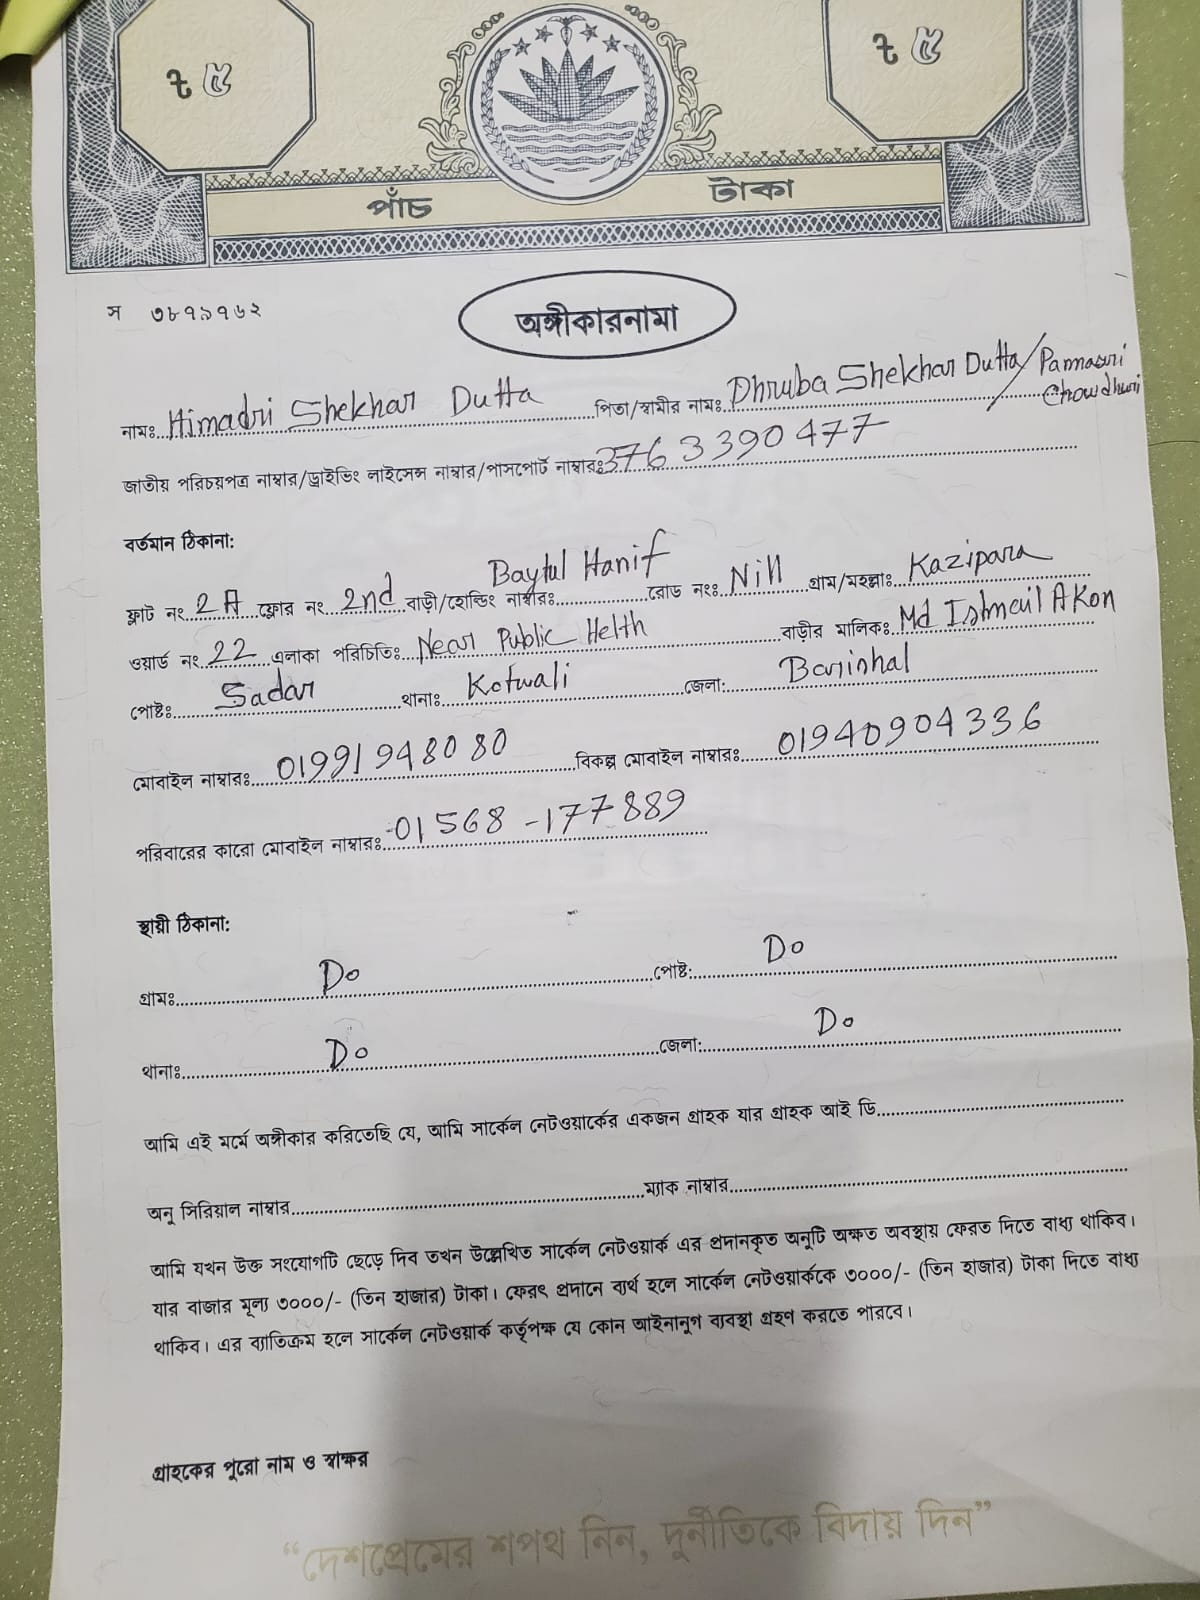 ৳ ৫ ৳ ৫
পাঁচ টাকা
স ৩৮৭১৭৬২
অঙ্গীকারনামা
নামঃ Himadri Shekhar Dutta পিতা/স্বামীর নামঃ Dhruba Shekhar Dutta/ Pannasri Chowdhuri
জাতীয় পরিচয়পত্র নাম্বার/ড্রাইভিং লাইসেন্স নাম্বার/পাসপোর্ট নাম্বারঃ 3763390477
বর্তমান ঠিকানা:
ফ্লাট নং 2A ফ্লোর নং 2nd বাড়ী/হোল্ডিং নাম্বারঃ Baytul Hanif রোড নংঃ Nill গ্রাম/মহল্লাঃ Kazipara
ওয়ার্ড নং 22 এলাকা পরিচিতিঃ Near Public Helth বাড়ীর মালিকঃ Md Ishmail Akon
পোষ্টঃ Sadar থানাঃ Kotwali জেলা: Barishal
মোবাইল নাম্বারঃ 01991948080 বিকল্প মোবাইল নাম্বারঃ 01940904336
পরিবারের কারো মোবাইল নাম্বারঃ 01568-177889
স্থায়ী ঠিকানা:
গ্রামঃ Do পোষ্ট: Do
থানাঃ Do জেলা: Do
আমি এই মর্মে অঙ্গীকার করিতেছি যে, আমি সার্কেল নেটওয়ার্কের একজন গ্রাহক যার গ্রাহক আই ডি
অনু সিরিয়াল নাম্বার ম্যাক নাম্বার
আমি যখন উক্ত সংযোগটি ছেড়ে দিব তখন উল্লেখিত সার্কেল নেটওয়ার্ক এর প্রদানকৃত অনুটি অক্ষত অবস্থায় ফেরত দিতে বাধ্য থাকিব।
যার বাজার মূল্য ৩০০০/- (তিন হাজার) টাকা। ফেরৎ প্রদানে ব্যর্থ হলে সার্কেল নেটওয়ার্ককে ৩০০০/- (তিন হাজার) টাকা দিতে বাধ্য
থাকিব। এর ব্যাতিক্রম হলে সার্কেল নেটওয়ার্ক কর্তৃপক্ষ যে কোন আইনানুগ ব্যবস্থা গ্রহণ করতে পারবে।
গ্রাহকের পুরো নাম ও স্বাক্ষর
“দেশপ্রেমের শপথ নিন, দুর্নীতিকে বিদায় দিন”